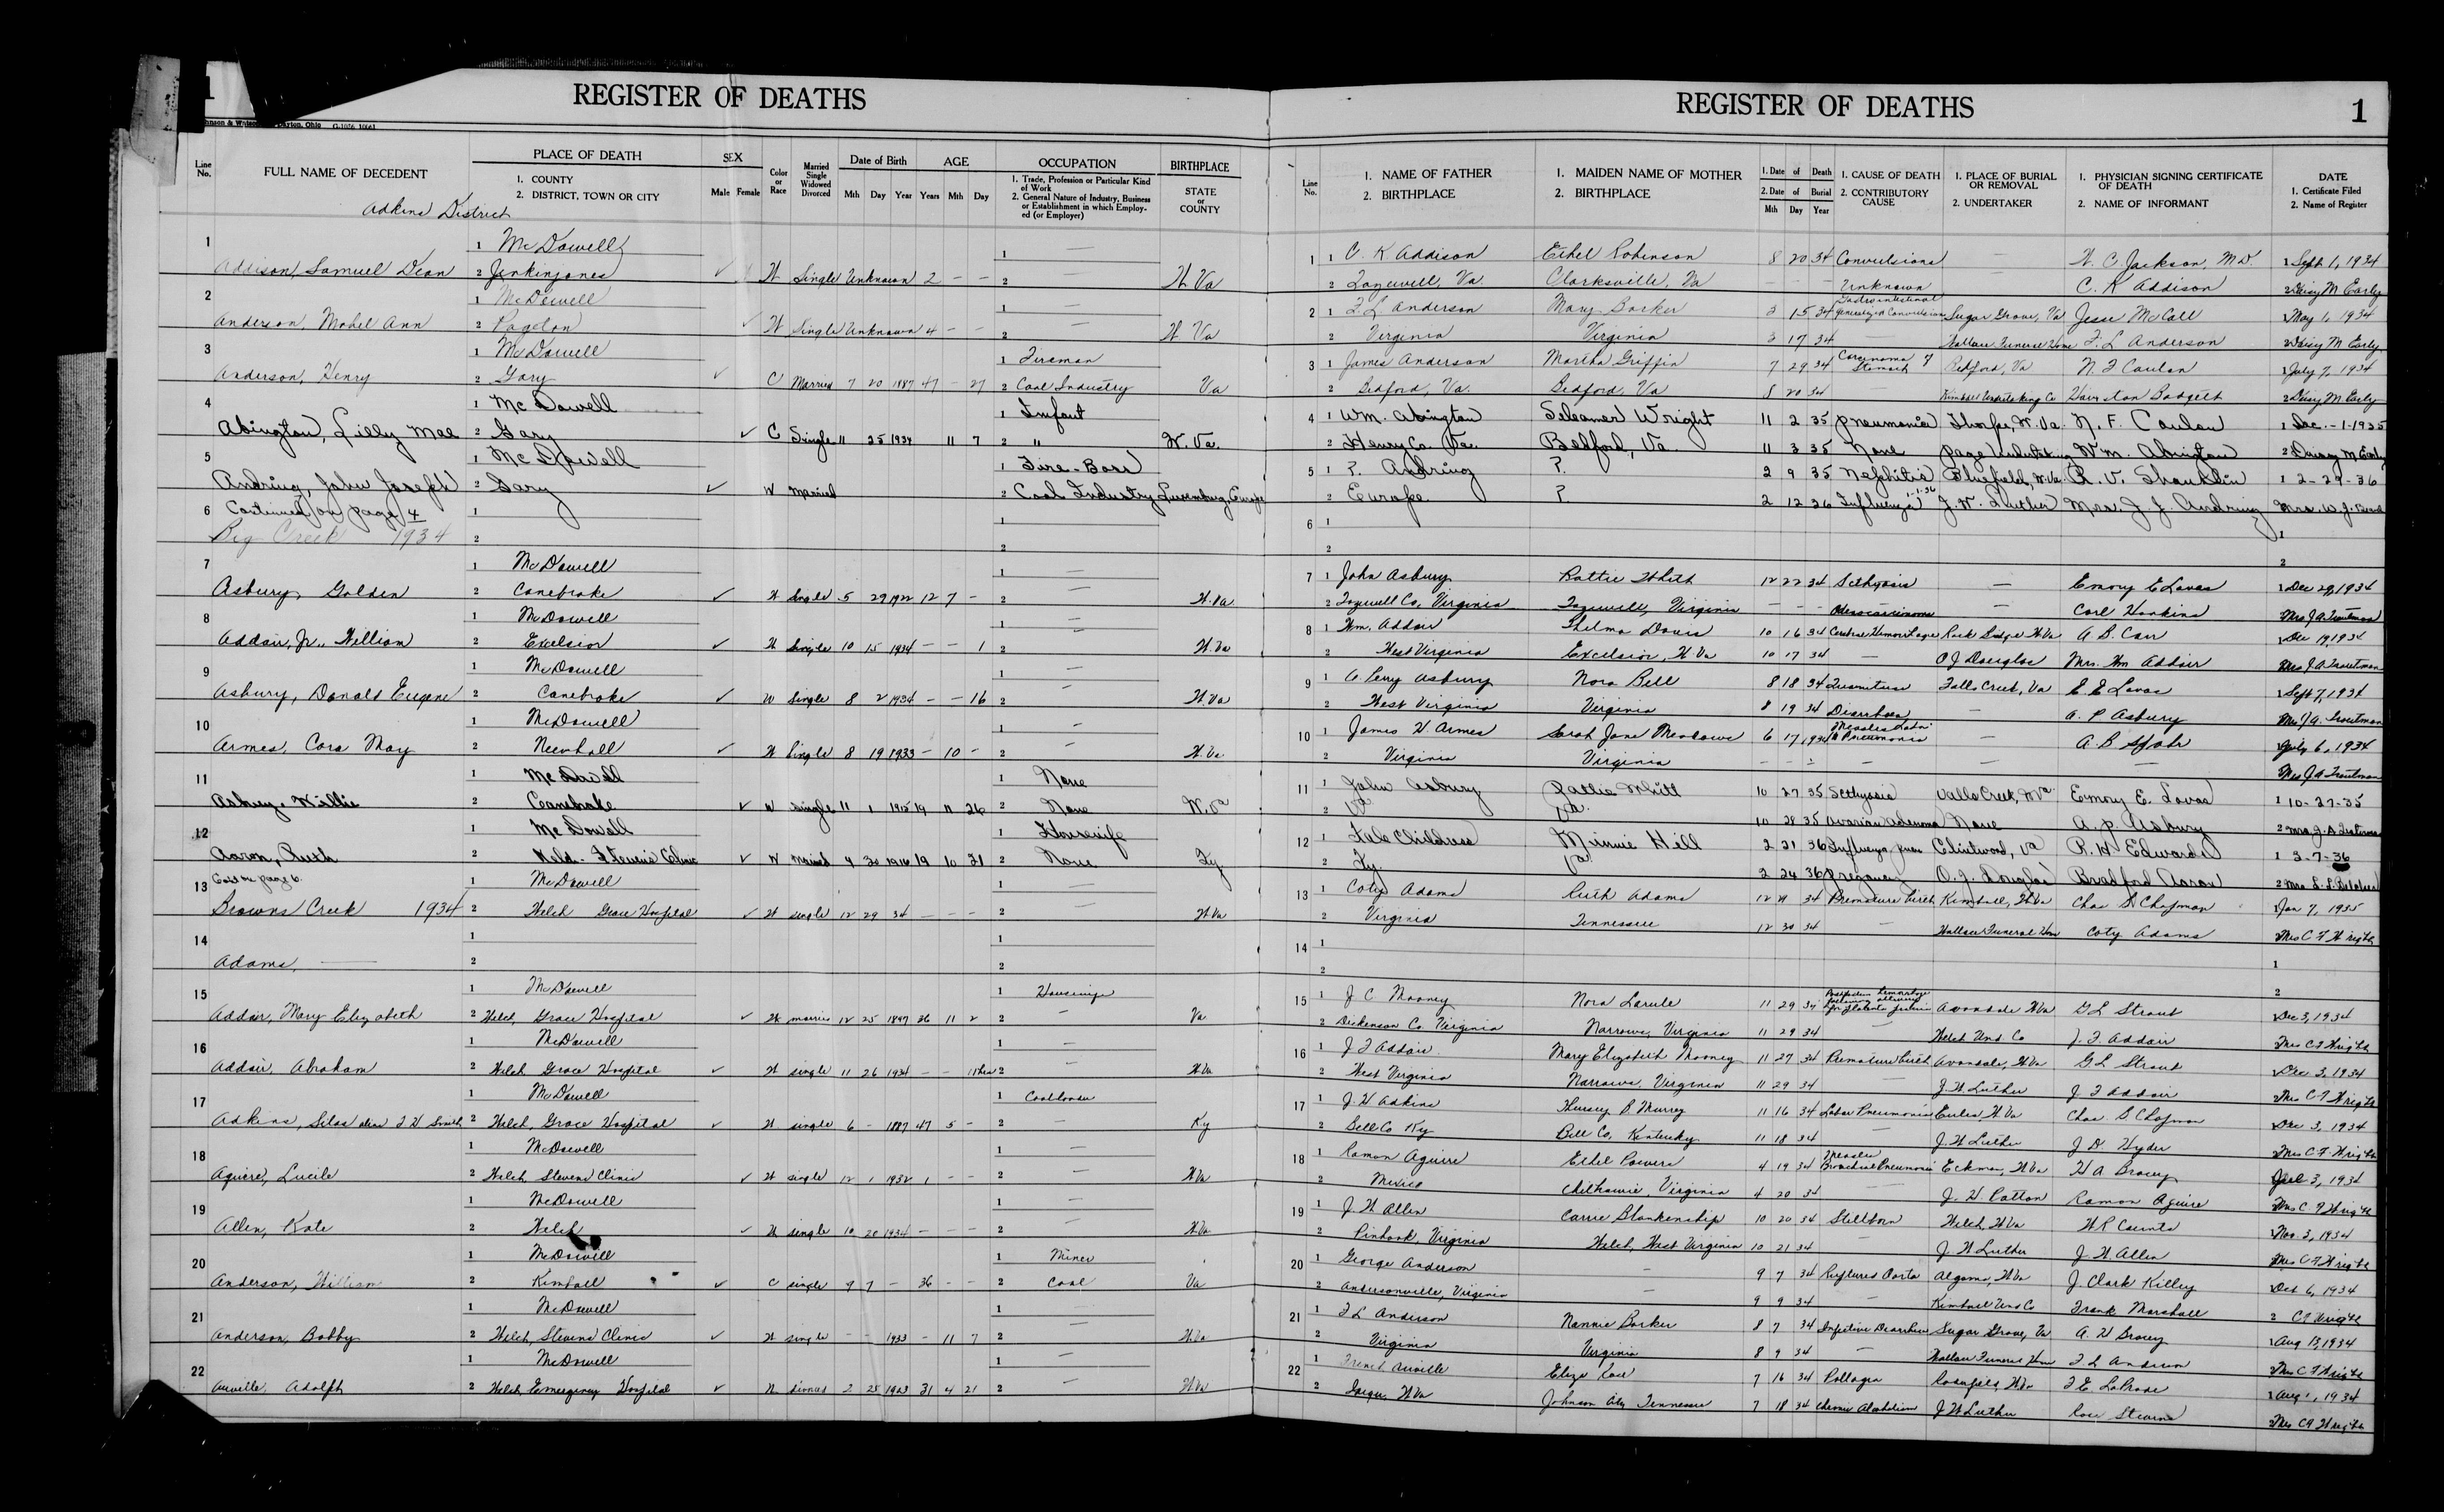 1
REGISTER OF DEATHS
REGISTER OF DEATHS
1
Dayton, Ohio
Line No. FULL NAME OF DECEDENT PLACE OF DEATH 1. COUNTY 2. DISTRICT, TOWN OR CITY SEX Male Female Color or Race Married Single Widowed Divorced Date of Birth Mth Day Year AGE Years Mth Day OCCUPATION 1. Trade, Profession or Particular Kind of Work 2. General Nature of Industry, Business or Establishment in which Employed (or Employer) BIRTHPLACE STATE or COUNTY
Line No. 1. NAME OF FATHER 2. BIRTHPLACE 1. MAIDEN NAME OF MOTHER 2. BIRTHPLACE 1. Date of Death 2. Date of Burial Mth Day Year 1. CAUSE OF DEATH 2. CONTRIBUTORY CAUSE 1. PLACE OF BURIAL OR REMOVAL 2. UNDERTAKER 1. PHYSICIAN SIGNING CERTIFICATE OF DEATH 2. NAME OF INFORMANT DATE 1. Certificate Filed 2. Name of Register
Adkins District
1 1 McDowell 1 —
Addison, Samuel Dean 2 Jenkinjones ✓ W Single Unknown 2 — — 2 W Va
1 1 C. K Addison Ethel Robinson 8 20 34 Convulsions — W. C. Jackson, M.D. 1 Sept 1, 1934
2 Tazewell, Va. Clarksville, Va — — — Unknown C. K Addison 2 Daisy M Early
2 1 McDowell 1 —
Anderson, Mabel Ann 2 Pageton ✓ W Single Unknown 4 — — 2 — W Va
2 1 F L Anderson Mary Barker 3 15 34 Sugar Grove, Va Jesse McCall 1 May 1, 1934
2 Virginia Virginia 3 17 34 — Wallace Funeral Home F. L Anderson 2 Daisy M Early
3 1 McDowell 1 Fireman
Anderson, Henry 2 Gary ✓ C Married 7 20 1887 47 — 27 2 Coal Industry Va
3 1 James Anderson Martha Griffin 7 29 34 Carcinoma of Stomach Bedford, Va N. F Coulon 1 July 7, 1934
2 Bedford, Va. Bedford, Va 8 20 34 Kimball Undertaking Co 2 Daisy M Early
4 1 McDowell 1 Infant
Abington, Lilly Mae 2 Gary ✓ C Single 11 25 1934 11 7 2 " W. Va.
4 1 Wm. Abington Seleaner Wright 11 2 35 pneumonia Thorpe, W. Va. N. F. Coulon 1 Dec. - 1 - 1935
2 Henry Co. Va. Bedford, Va. 11 3 35 None Page Wm. Abington 2 Daisy M Early
5 1 McDowell 1 Fire-Boss
Andring, John Joseph 2 Gary ✓ W Married 2 Coal Industry Luxemburg, Europe
5 1 ?. Andring ?. 2 9 35 Nephitis Bluefield, W. Va. R. V. Shanklin 1 2-29-36
2 Europe. ?. 2 12 36 Influenza 1-1-36 J. W. Luther Mrs. J. J. Andring Mrs. W. J.
6 Continued on page 4 1 1
Big Creek 1934 2 2
6 1
2
7 1 McDowell 1 —
Asbury, Golden 2 Canebrake ✓ W Single 5 29 1922 12 7 — 2 — W. Va
7 1 John Asbury Rattie Whitt 12 22 34 Icthyosis — Emory E Lovas 1 Dec 29, 1934
2 Tazewell Co, Virginia Tazewell, Virginia — — — Adenocarcinoma — Carl Hankins Mrs J A Troutman
8 1 McDowell 1 —
Addair, Jr., William 2 Excelsior ✓ W Single 10 15 1934 — — 1 2 W. Va
8 1 Wm. Addair Thelma Davis 10 16 34 Cerebral Hemorrhage W Va A. B. Carr 1 Dec 19, 1934
2 West Virginia Excelsior, W Va 10 17 34 — O J Douglas Mrs. Wm Addair Mrs J. A Troutman
9 1 McDowell 1 —
Asbury, Donald Eugene 2 Canebrake ✓ W Single 8 2 1934 — — 16 2 W. Va
9 1 A. Perry Asbury Nora Bell 8 18 34 Falls Creek, Va E E Lovas 1 Sept 7, 1934
2 West Virginia Virginia 8 19 34 Diarrhoea — A. P Asbury Mrs J A. Troutman
10 1 McDowell 1 —
Armes, Cora May 2 Newhall ✓ W Single 8 19 1933 — 10 — 2 — W. Va
10 1 James W. Armes Sarah Jane Meadows 6 17 1934 Measles Pneumonia — A. B Spahr 1 July 6, 1934
2 Virginia Virginia — — — — — — Mrs J A Troutman
11 1 McDowell 1 None
Asbury, Willie 2 Canebrake ✓ W Single 11 1 1915 19 11 26 2 None W. Va
11 1 John Asbury Rattie Whitt 10 27 35 Icthyosis Valls Creek, W Va Emory E. Lovas 1 10-27-35
2 Va Va. 10 28 35 Ovarian adenoma None A. P. Asbury 2 Mrs. J. A Troutman
12 1 McDowell 1 Housewife
Aaron, Ruth 2 Welch - Stevens Clinic ✓ W Married 4 30 1916 19 10 21 2 None Ky
12 1 Childress Minnie Hill 2 21 36 Clintwood, Va R. H Edwards 1 3-7-36
2 Ky. Va. 2 24 36 Pregnancy O. J. Douglas Bradford Aaron 2 Mrs. S. L. Belcher
Cont on page 6.
13 1 McDowell 1 —
Browns Creek 1934 2 Welch Grace Hospital ✓ W single 12 29 34 — — — 2 — W Va
13 1 Coty Adams Ruth Adams 12 29 34 Premature birth Kimball, W Va Chas S Chapman 1 Jan 7, 1935
2 Virginia Tennessee 12 30 34 — Wallace Funeral Home Coty Adams Mrs C F Wright
14 1 1
Adams, — 2 2
14 1 1
2 2
15 1 McDowell 1 Housewife
Addair, Mary Elizabeth 2 Welch, Grace Hospital ✓ W married 12 25 1897 36 11 2 2 — Va
15 1 J. C. Mooney Nora Larule 11 29 34 Avondale W Va G L Straub Dec 3, 1934
2 Dickenson Co. Virginia Narrows, Virginia 11 29 34 — Welch Und. Co J. F. Addair Mrs C F Wright
16 1 McDowell 1 —
Addair, Abraham 2 Welch Grace Hospital ✓ W single 11 26 1934 — — 11 hrs 2 — W Va
16 1 J F Addair Mary Elizabeth Mooney 11 27 34 Premature birth Avondale, W Va G. L Straub Dec 3, 1934
2 West Virginia Narrows, Virginia 11 29 34 — J. W Luther J. F Addair Mrs C F Wright
17 1 McDowell 1 Coal loader
Adkins, Silas alias J. H Smith 2 Welch, Grace Hospital ✓ W single 6 — 1887 47 5 — 2 — Ky
17 1 J. W Adkins Hursey B Murrey 11 16 34 Lobar Pneumonia W Va Chas S Chapman Dec 3, 1934
2 Bell Co Ky Bell Co, Kentucky 11 18 34 — J. W Luther J D. Hyder Mrs C F Wright
18 1 McDowell 1 —
Aguire, Lucile 2 Welch Stevens Clinic ✓ W single 12 1 1932 1 — — 2 — W Va
18 1 Ramon Aguire Ethel Powers 4 19 34 Measles Bronchial Pneumonia Eckman, W Va W A Bracey 3, 1934
2 Mexico Chilhowie, Virginia 4 20 34 — J. W Patton Ramon Aguire Mrs C F Wright
19 1 McDowell 1 —
Allen, Kate 2 Welch ✓ W single 10 20 1934 — — — 2 — W Va
19 1 J. W Allen Carrie Blankenship 10 20 34 Stillborn Welch, W Va W R Counts Nov. 3, 1934
2 Pinhook, Virginia Welch, West Virginia 10 21 34 — J. W Luther J. W Allen Mrs C F Wright
20 1 McDowell 1 Miner
Anderson, William 2 Kimball ✓ C single 9 7 — 36 — — 2 Coal Va
20 1 George Anderson — 9 7 34 Ruptured Aorta Algoma, W Va J. Clark Killey Oct 6, 1934
2 Andersonville, Virginia — 9 9 34 — Kimball Und Co Frank Marshall 2 C F Wright
21 1 McDowell 1 —
Anderson, Bobby 2 Welch, Stevens Clinic ✓ W single — — 1933 — 11 7 2 W Va
21 1 F L Anderson Nannie Barker 8 7 34 Infective Diarrhea Sugar Grove, Va A. W Bracey 1 Aug 13, 1934
2 Virginia Virginia 8 9 34 — Wallace Funeral Home F L Anderson Mrs C F Wright
22 1 McDowell 1 —
Auville, Adolph 2 Welch, Emergency Hospital ✓ W divorced 2 25 1903 31 4 21 2 — W Va
22 1 French Auville Eliza 7 16 34 Pellagra W Va F E LaPrade 1 Aug 1, 1934
2 Jaeger, W Va Johnson City Tennessee 7 18 34 Chronic Alcoholism J W Luther Rose Stevens 2 Mrs C F Wright